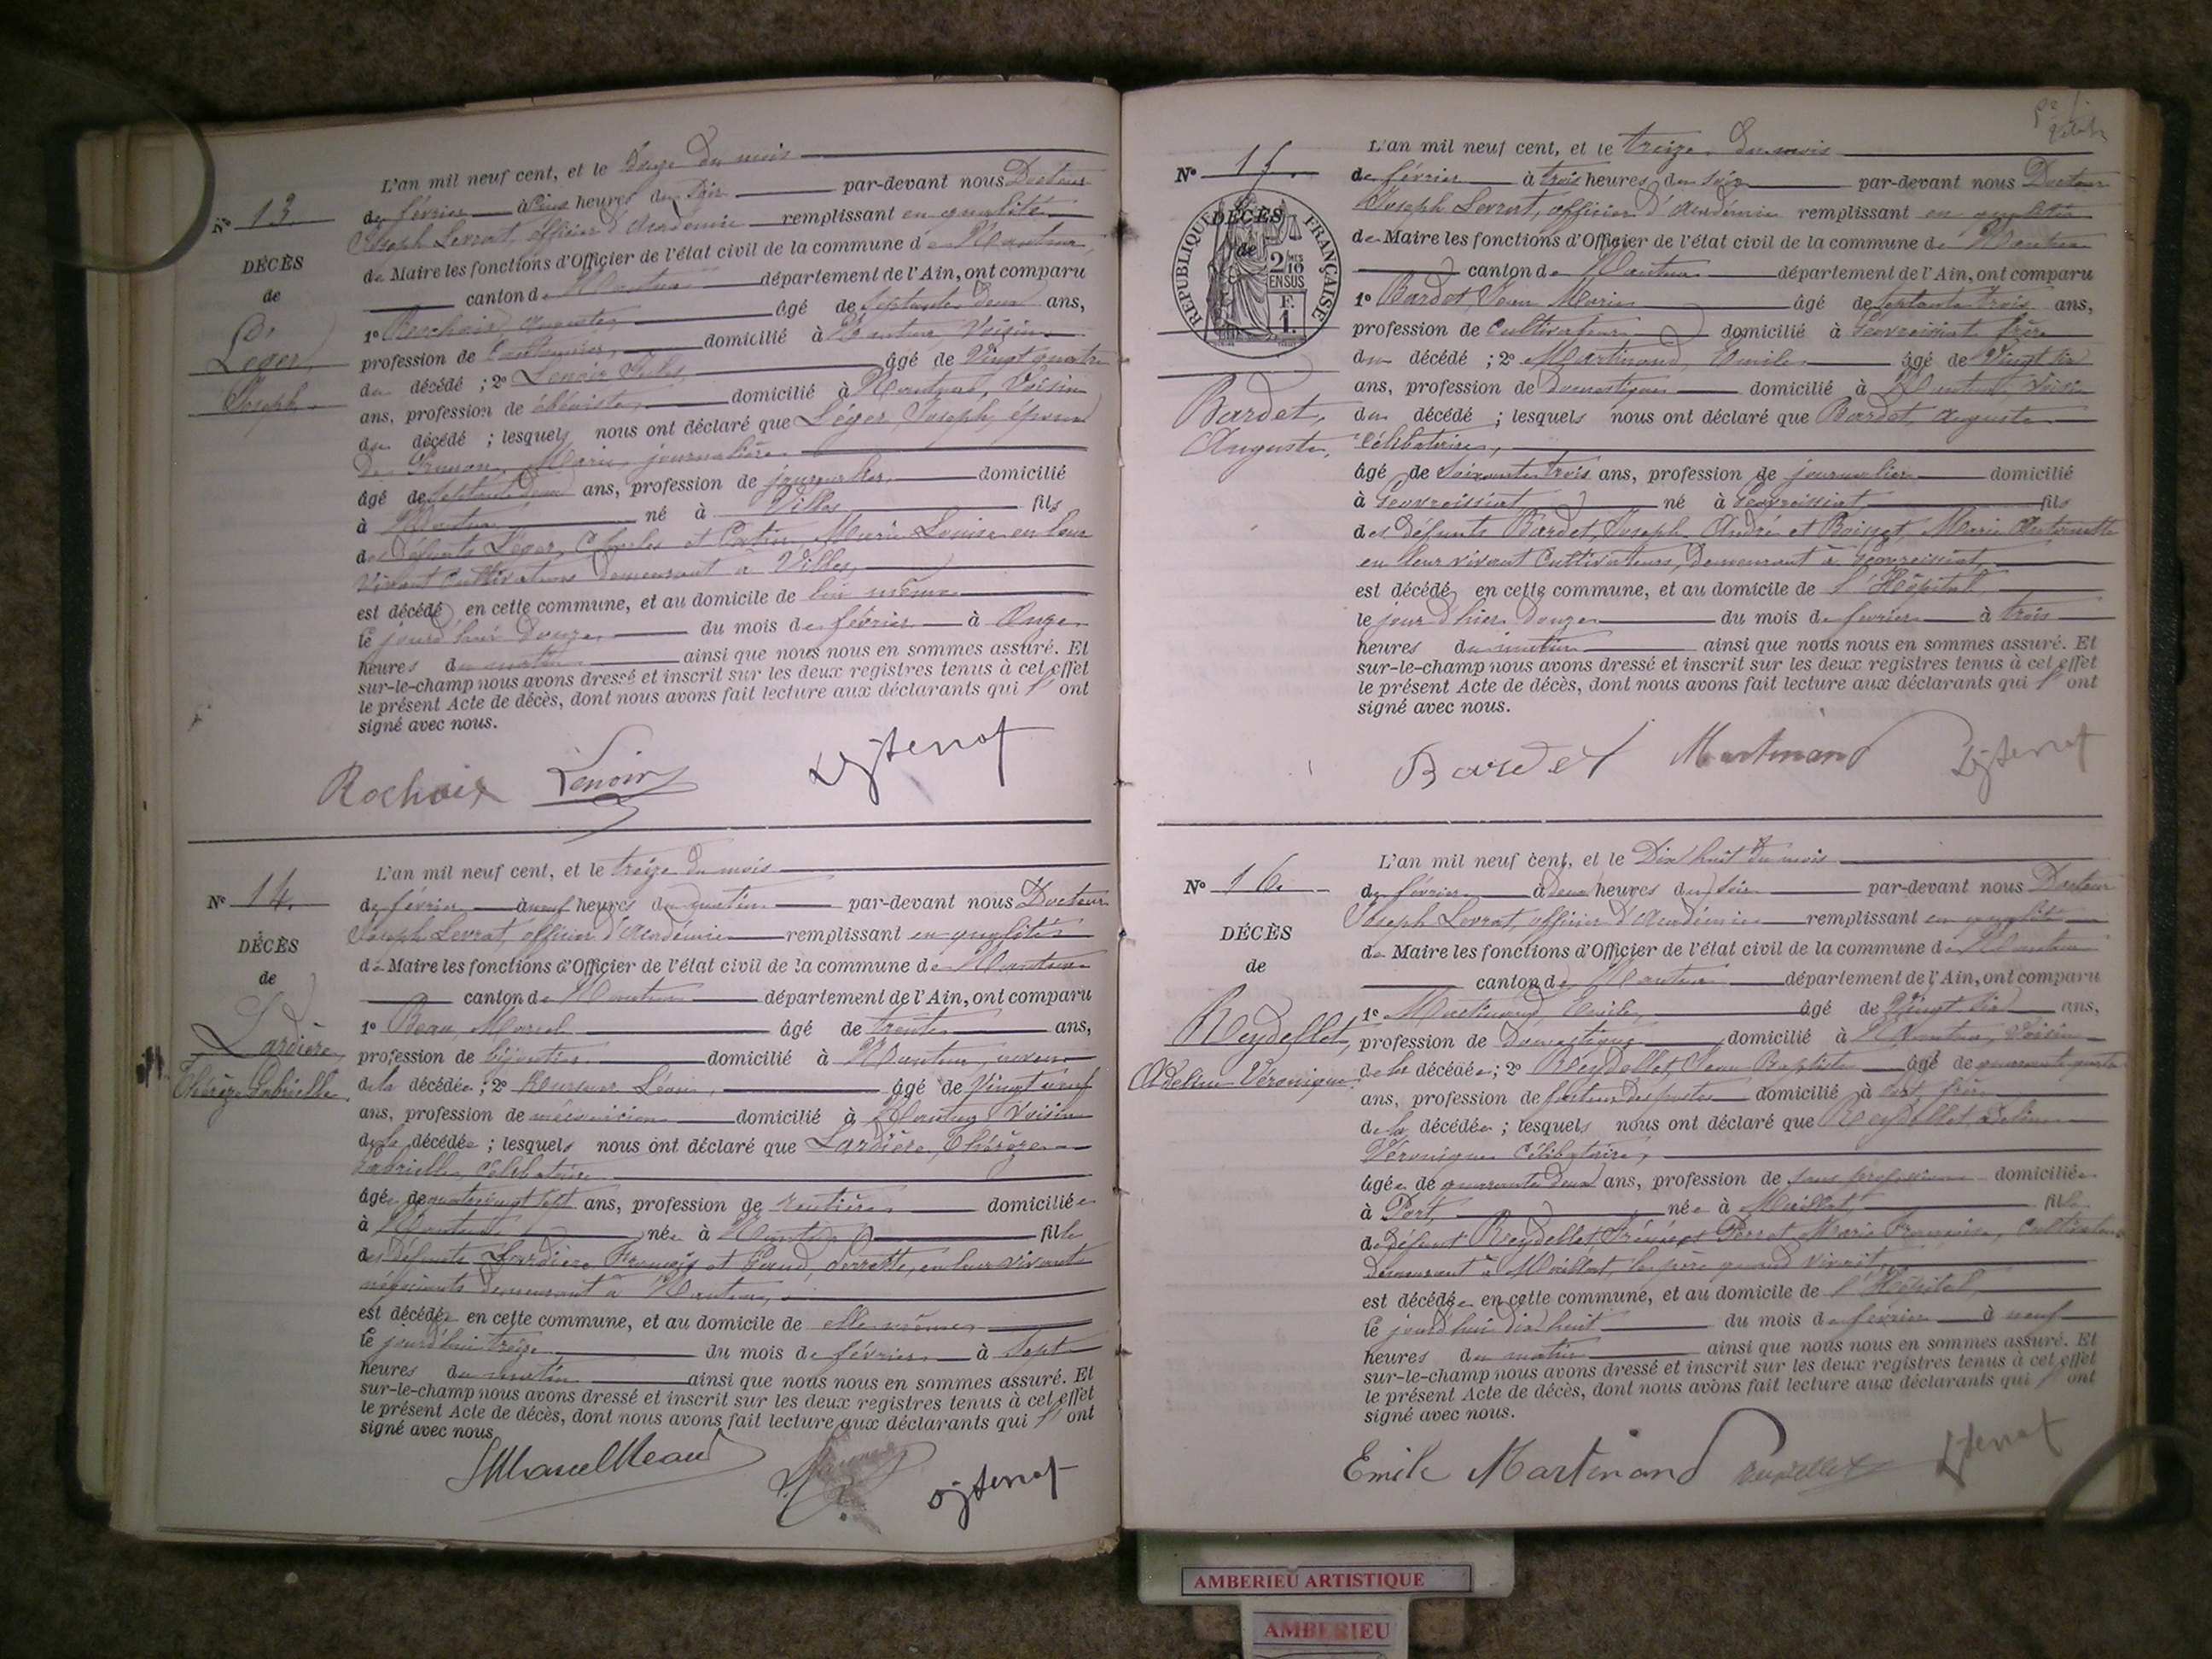 L'an mil neuf cent, et le Douze du mois
N° 13.
de février à Cinq heures du Soir par-devant nous Docteur
Joseph Levrat, officier d'Académie remplissant en qualité
DÉCÈS
de Maire les fonctions d'Officier de l'état civil de la commune de Nantua,
de
canton de Nantua département de l'Ain, ont comparu
Léger,
Joseph.
1° Rochaix, Auguste, âgé de septante deux ans,
profession de domicilié à Nantua, Voisin
du décédé ; 2° Lenoir, Jules, âgé de Vingt quatre
ans, profession de ébéniste, domicilié à Nantua, Voisin
du décédé ; lesquels nous ont déclaré que Léger, Joseph, époux
De Marie, journalière
âgé de septante deux ans, profession de journalier domicilié
à Nantua né à Villes fils
des défunts Léger, Charles et Marie Louise en leur
vivant Cultivateurs demeurant à Villes,
est décédé en cette commune, et au domicile de lui même
le jourd'hui Douze, du mois de février à Onze
heures du matin ainsi que nous nous en sommes assuré. Et
sur-le-champ nous avons dressé et inscrit sur les deux registres tenus à cet effet
le présent Acte de décès, dont nous avons fait lecture aux déclarants qui l'ont
signé avec nous.
Rochaix Lenoir
L'an mil neuf cent, et le treize du mois
N° 14.
de février à neuf heures du matin par-devant nous Docteur
Joseph Levrat, officier d'Académie remplissant en qualité
DÉCÈS
de Maire les fonctions d'Officier de l'état civil de la commune de Nantua
de
canton de Nantua département de l'Ain, ont comparu
Lardière,
Thérèze Gabrielle.
1° Marcel âgé de trente ans,
profession de bijoutier domicilié à Nantua, neveu
de la décédée ; 2° Léon, âgé de Vingt neuf
ans, profession de mécanicien domicilié à Nantua, Voisin
de la décédée ; lesquels nous ont déclaré que Lardière, Thérèze
Gabrielle, Célibataire
âgée de quatrevingt sept ans, profession de rentière domiciliée
à Nantua née à Nantua fille
des défunts Lardière, François et en leur vivants
négociants demeurant à Nantua,
est décédée en cette commune, et au domicile de elle même
le jourd'hui treize du mois de février à Sept
heures du matin ainsi que nous nous en sommes assuré. Et
sur-le-champ nous avons dressé et inscrit sur les deux registres tenus à cet effet
le présent Acte de décès, dont nous avons fait lecture aux déclarants qui l'ont
signé avec nous.
L'an mil neuf cent, et le treize du mois
N° 15.
de février à trois heures du soir par-devant nous Docteur
Joseph Levrat, officier d'Académie remplissant en qualité
DÉCÈS
de
RÉPUBLIQUE FRANÇAISE
2/10 MES
EN SUS
F.
1.
de Maire les fonctions d'Officier de l'état civil de la commune de Nantua
canton de Nantua département de l'Ain, ont comparu
1° Bardet, Jean Marie âgé de septante trois ans,
profession de Cultivateur domicilié à Geovreissiat frère
du décédé ; 2° Martinand, Emile âgé de Vingt six
Bardet,
Auguste,
ans, profession de Domestique domicilié à Nantua Voisin
du décédé ; lesquels nous ont déclaré que Bardet, Auguste
Célibataire,
âgé de soixante trois ans, profession de journalier domicilié
à Geovreissiat né à Geovreissiat fils
des défunts Bardet, Joseph André et Marie Antoinette
en leur vivant Cultivateurs, demeurant à Geovreissiat
est décédé en cette commune, et au domicile de l'Hôpital
le jour d'hier douze du mois de février à trois
heures du matin ainsi que nous nous en sommes assuré. Et
sur-le-champ nous avons dressé et inscrit sur les deux registres tenus à cet effet
le présent Acte de décès, dont nous avons fait lecture aux déclarants qui l'ont
signé avec nous.
Bardet Martinand
L'an mil neuf cent, et le Dix huit du mois
N° 16.
de février à deux heures du soir par-devant nous Docteur
Joseph Levrat, officier d'Académie remplissant en qualité
DÉCÈS
de Maire les fonctions d'Officier de l'état civil de la commune de Nantua
de
canton de Nantua département de l'Ain, ont comparu
Reydellet,
Adeline Véronique.
1° Martinand, Emile, âgé de Vingt six ans,
profession de Domestique domicilié à Nantua, Voisin
de la décédée ; 2° Reydellet, Jean Baptiste âgé de quarante quatre
ans, profession de facteur des postes domicilié à Port, frère
de la décédée ; lesquels nous ont déclaré que Reydellet, Adeline
Véronique Célibataire,
âgée de quarante deux ans, profession de sans profession domiciliée
à Port, née à Maillat, fille
de défunt Reydellet, et Perret Marie Françoise, Cultivateurs
demeurant à Maillat, le père quand vivait,
est décédée en cette commune, et au domicile de l'Hôpital,
le jourd'hui dix huit du mois de février à neuf
heures du matin ainsi que nous nous en sommes assuré. Et
sur-le-champ nous avons dressé et inscrit sur les deux registres tenus à cet effet
le présent Acte de décès, dont nous avons fait lecture aux déclarants qui l'ont
signé avec nous.
Emile Martinand
AMBERIEU ARTISTIQUE
AMBERIEU